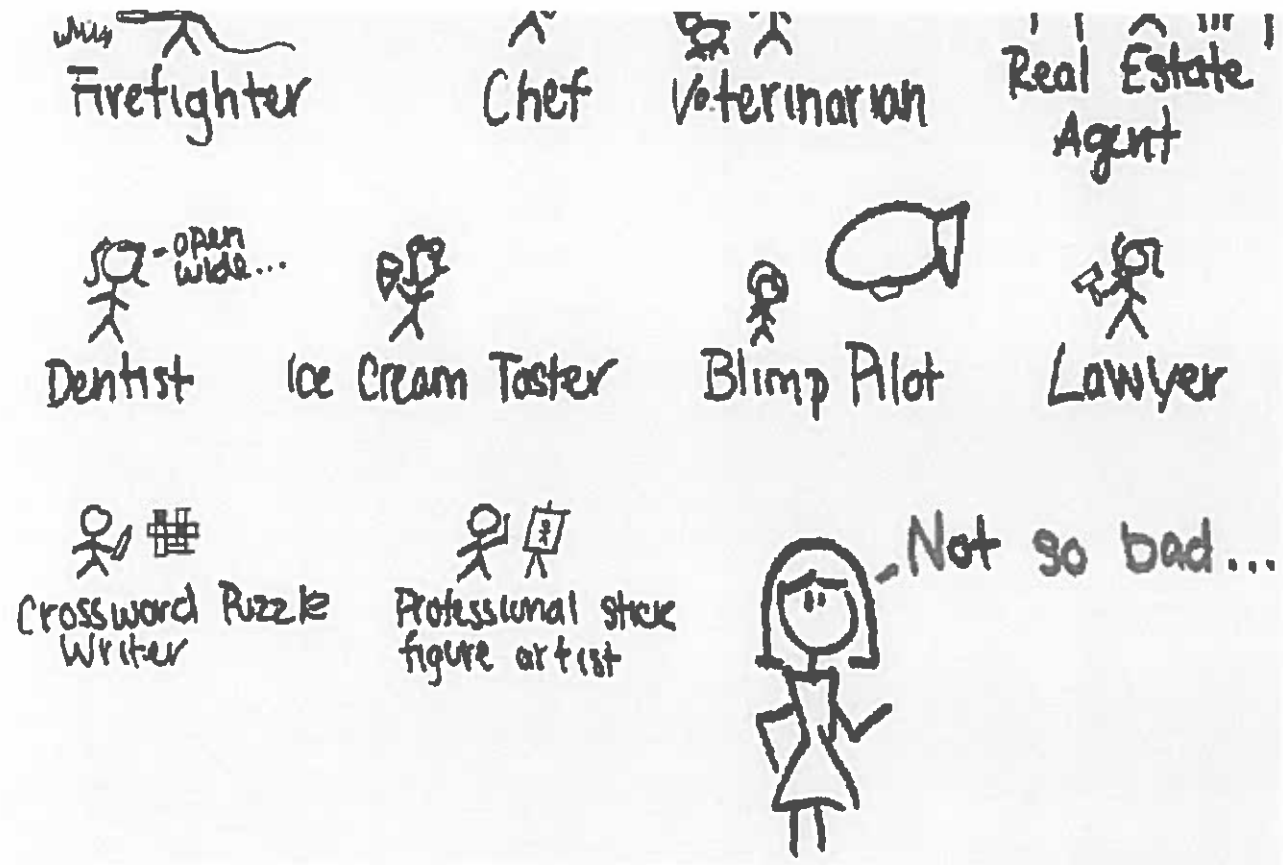 Firefighter
Chef
Veterinarian
Real Estate
Agent
open
wide...
Dentist
Ice Cream Taster
Blimp Pilot
Lawyer
Crossword Puzzle
Writer
Professional stick
figure artist
Not so bad...